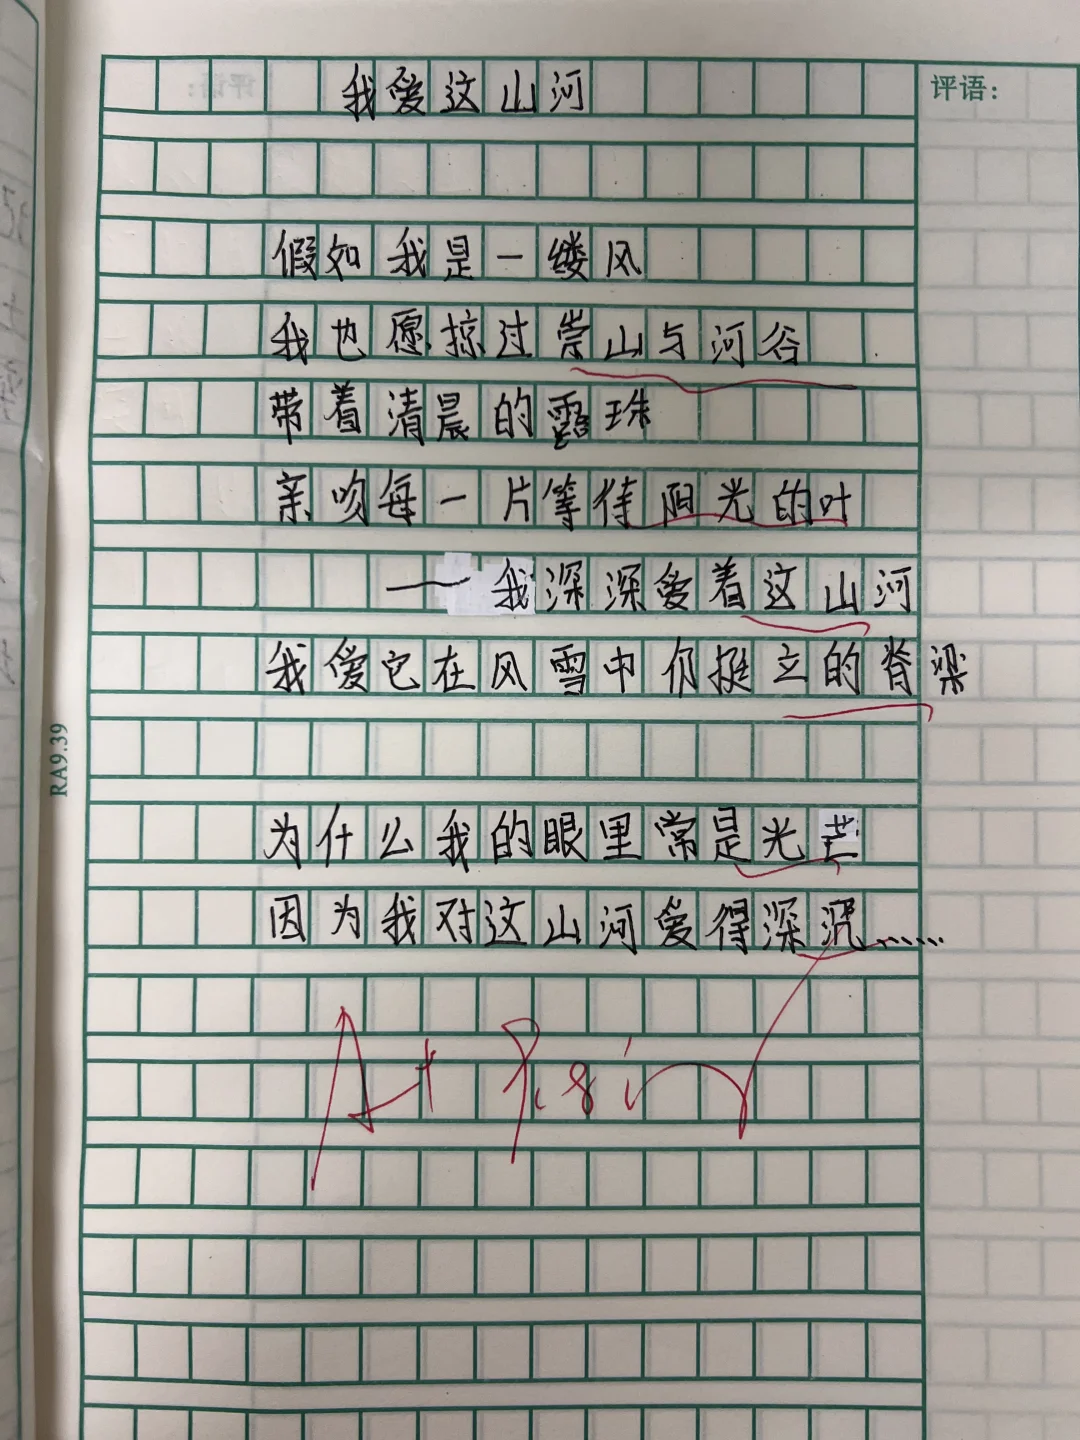 我爱这山河
评语：
假如我是一缕风
我也愿掠过崇山与河谷
带着清晨的露珠
亲吻每一片等待阳光的叶
——我深深爱着这山河
我爱它在风雪中仍挺立的脊梁
RA9.39
为什么我的眼里常是光芒
因为我对这山河爱得深沉……
A+